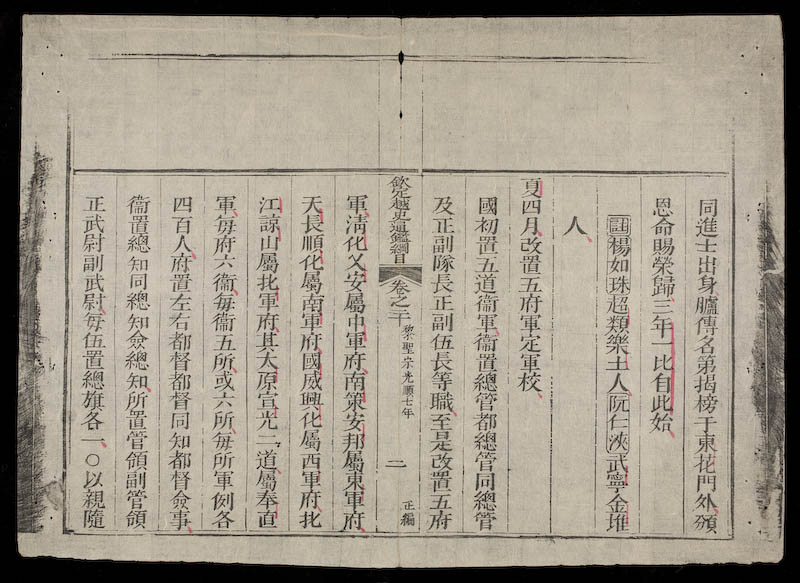 同進士出身臚傳名第揭榜于東花門外頒
恩命賜榮歸三年一比自此始
註楊如珠超類樂土人阮仁浹武寧金堆
人
夏四月改置五府軍定軍校
國初置五道衞軍衞置總管都總管同總管
及正副隊長正副伍長等職至是改置五府
欽定越史通鑑綱目 卷之二十 黎聖宗光順七年 二 正編
軍淸化乂安屬中軍府南策安邦屬東軍府
天長順化屬南軍府國威興化屬西軍府北
江諒山屬北軍府其太原宣光二道屬奉直
軍每府六衞每衞五所或六所每所軍例各
四百人府置左右都督都督同知都督僉事
衞置總知同總知僉總知所置管領副管領
正武尉副武尉每伍置總旗各一〇以親隨